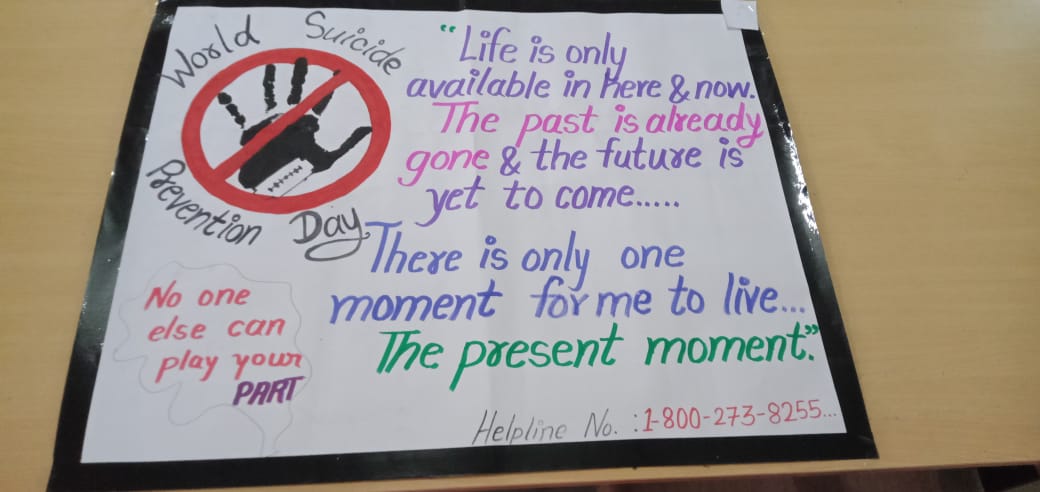 World Suicide
Prevention Day
"Life is only
available in here & now.
The past is already
gone & the future is
yet to come.....
There is only one
moment for me to live...
The present moment."
No one
else can
play your
PART
Helpline No. : 1-800-273-8255...